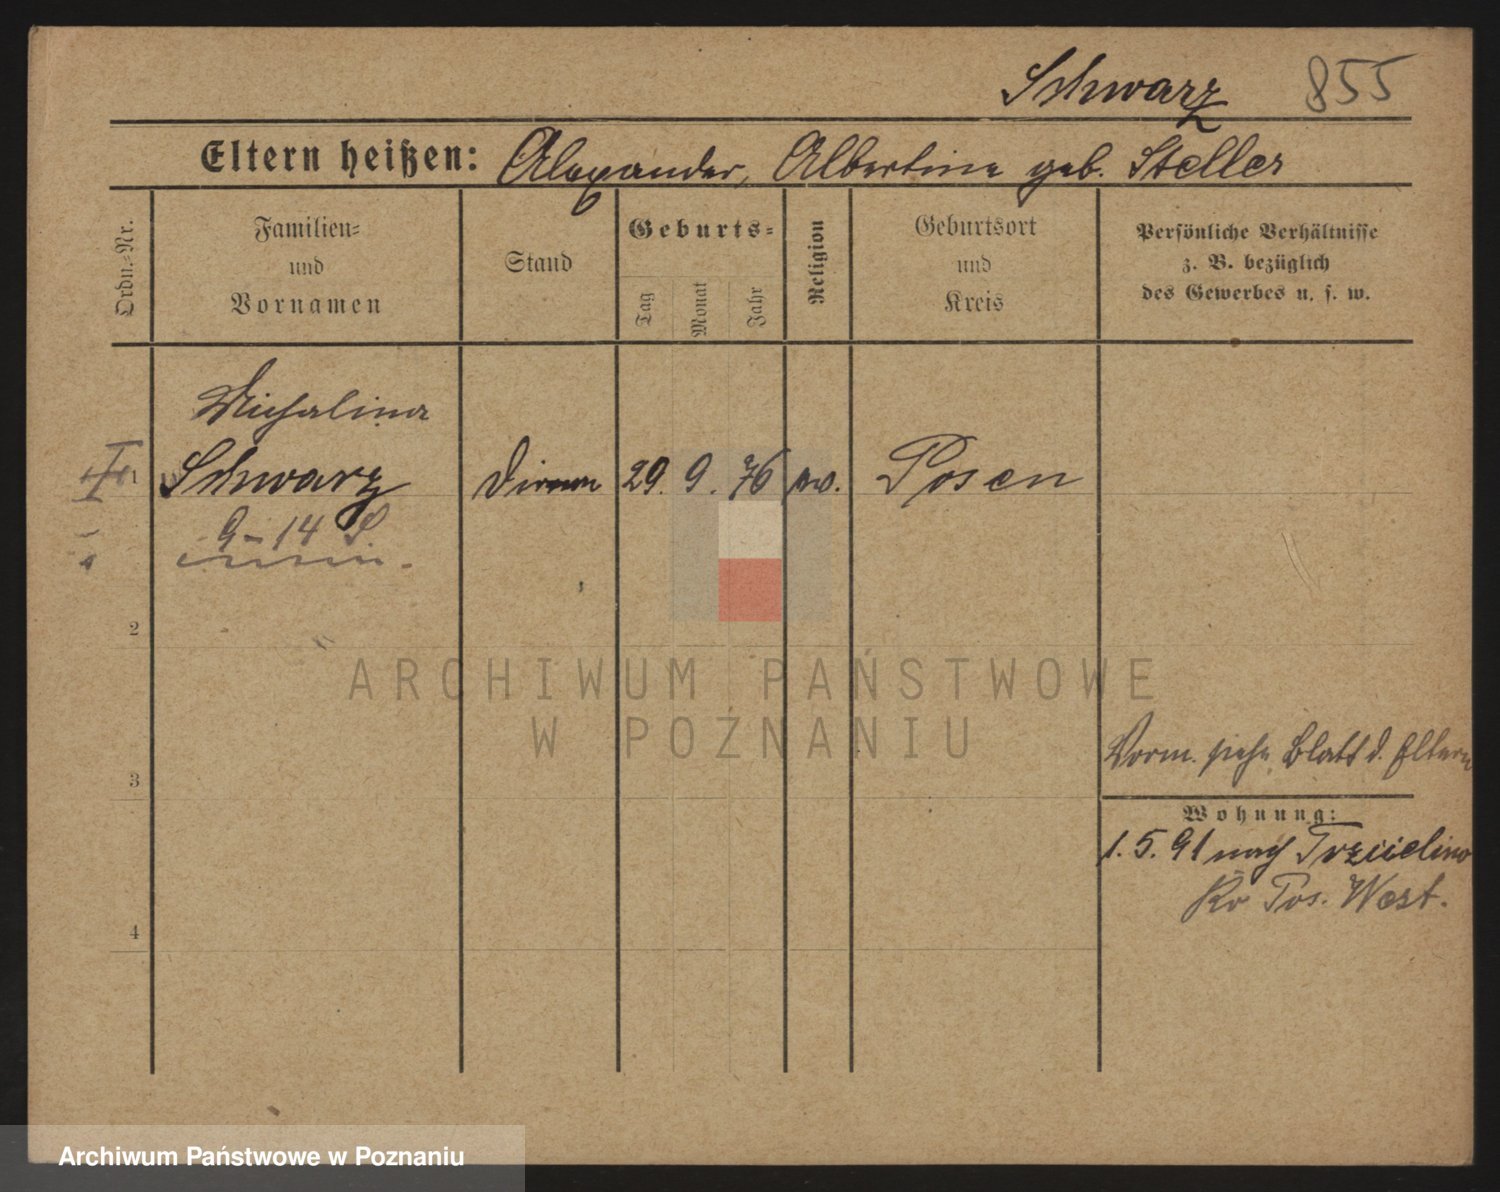 Schwarz 855
Eltern heißen: Alexander, Albertine geb. Steller
Ordn.-Nr.
Familien-
und
Vornamen
Stand
Geburts-
Tag
Monat
Jahr
Religion
Geburtsort
und
Kreis
Persönliche Verhältnisse
z. B. bezüglich
des Gewerbes u. s. w.
Michalina
1 Schwarz 29. 9. 76 Posen
9-14
2
3
Vorm. siehe Blatt d. Eltern
Wohnung:
1. 5. 91 nach
Pos. West.
4
ARCHIWUM PAŃSTWOWE
W POZNANIU
Archiwum Państwowe w Poznaniu